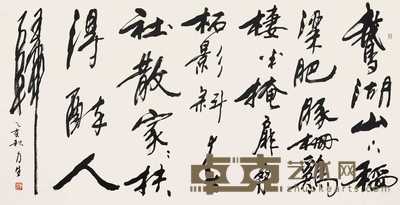 鵝湖山下稻
粱肥豚柵鷄
棲半掩扉桑
柘影斜春
社散家〻扶
得醉人
歸
乙亥秋